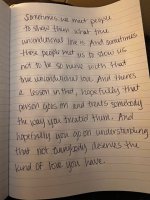 Sometimes we meet people
to show them what true
unconditional love is. And sometimes
those people meet us to show us
not to be so naive with that
true unconditional love. And theres
a lesson in that, hopefully that
person goes on and treats somebody
the way you treated them. And
hopefully you go on understanding
that not everybody deserves the
kind of love you have.